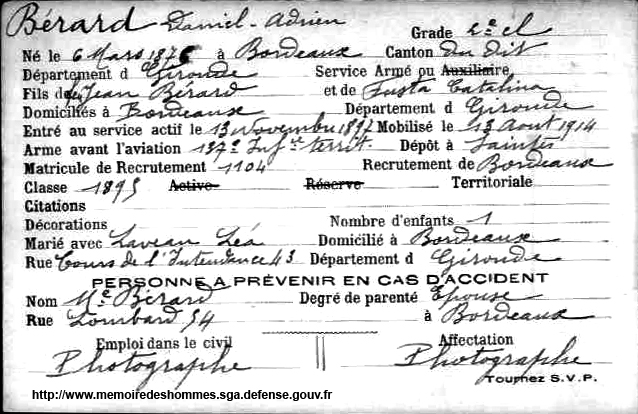 Bérard Daniel-Adrien Grade 2e cl
Né le 6 Mars 1875 à Bordeaux Canton du dit
Département d Gironde Service Armé ou Auxiliaire
Fils de feu Jean Bérard et de Justa Catalina
Domiciliés à Bordeaux Département d Gironde
Entré au service actif le 13 Novembre 1897 Mobilisé le 13 Aout 1914
Arme avant l'aviation 137e Inf.ie territ. Dépôt à Saintes
Matricule de Recrutement 1104 Recrutement de Bordeaux
Classe 1895 Active Réserve Territoriale
Citations
Décorations Nombre d'enfants 1
Marié avec Laveau Léa Domicilié à Bordeaux
Rue Cours de l'Intendance 43 Département d Gironde
PERSONNE A PRÉVENIR EN CAS D'ACCIDENT
Nom Me Bérard Degré de parenté Epouse
Rue Lombard 54 à Bordeaux
Emploi dans le civil Affectation
Photographe Photographe
Tournez S.V.P.
http://www.memoiredeshommes.sga.defense.gouv.fr